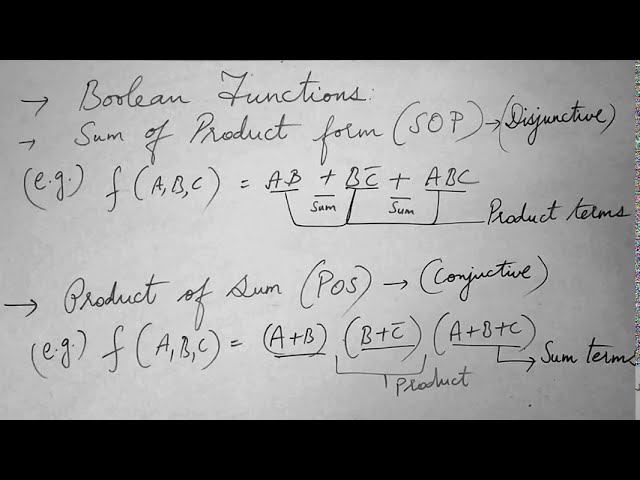 → Boolean Functions:
→ Sum of Product form (SOP) → (Disjunctive)
(e.g.) f(A,B,C) = AB + BC̅ + ABC
Sum Sum
Product terms
→ Product of Sum (POS) → (Conjuctive)
(e.g.) f(A,B,C) = (A+B) (B+C̅) (A+B+C)
Sum terms
Product